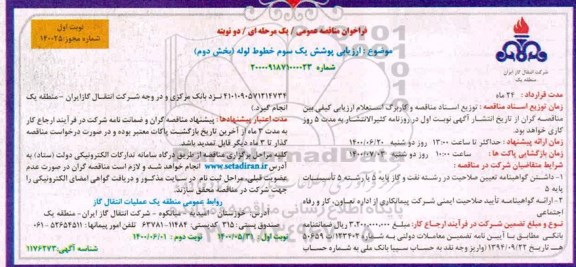 نوبت اول
شماره مجوز:۱۴۰۰۲۵
فراخوان مناقصه عمومی / یک مرحله ای / دو نوبته
موضوع : ارزیابی پوشش یک سوم خطوط لوله (بخش دوم)
شماره ۲۰۰۰۰۹۱۸۷۱۰۰۰۰۲۳
شرکت انتقال گاز ایران
منطقه یک
مدت قرارداد : ۲۴ ماه
زمان توزیع اسناد مناقصه : توزیع اسناد مناقصه و کاربرگ استعلام ارزیابی کیفی بین
مناقصه گران از تاریخ انتشار آگهی نوبت اول در روزنامه کثیرالانتشار به مدت ۵ روز
کاری خواهد بود.
زمان ارائه پیشنهاد : حداکثر تا ساعت ۱۳:۰۰ روز دو شنبه ۱۴۰۰/۰۶/۲۰
زمان بازگشایی پاکت ها : ساعت ۱۰:۰۰ روز
شرایط متقاضیان شرکت در مناقصه :
۱- داشتن گواهینامه تعیین صلاحیت در رشته نفت و گاز پایه ۵ یا رشته تأسیسات
پایه ۵
۲- ارائه گواهینامه تأیید صلاحیت ایمنی شرکت پیمانکاری از اداره تعاون، کار و رفاه
اجتماعی
نوع و مبلغ تضمین شرکت در فرآیند ارجاع کار: مبلغ ۳.۲۰۰.۰۰۰.۰۰۰ ریال ضمانتنامه
بانکی مطابق با آیین نامه تضمین معاملات دولتی به شماره
نزد بانک مرکزی و در وجه شرکت انتقال گاز ایران - منطقه یک
انجام گیرد)
مدت اعتبار پیشنهادها: پیشنهاد مناقصه گران و ضمانت نامه شرکت در فرآیند ارجاع کار
به مدت ۳ ماه از آخرین تاریخ بازگشت پاکات معتبر بوده و در صورت درخواست مناقصه
گذار تا ۳ ماه دیگر قابل تمدید باشد.
کلیه مراحل برگزاری مناقصه از طریق درگاه سامانه تدارکات الکترونیکی دولت (ستاد) به
آدرس www.setadiran.ir انجام خواهد شد و لازم است مناقصه گران در صورت عدم
عضویت قبلی، مراحل ثبت نام در سایت مذکور و دریافت گواهی امضای الکترونیکی را
جهت شرکت در مناقصه محقق سازند.
روابط عمومی منطقه یک عملیات انتقال گاز
آدرس: خوزستان - امیدیه - میانکوه - شرکت انتقال گاز ایران - منطقه یک
صندوق پستی: ۳۱۵ کدپستی:
نوبت اول: ۱۴۰۰/۰۵/۳۱ نوبت دوم : ۱۴۰۰/۰۶/۰۱
شناسه آگهی: ۱۱۷۶۲۷۳